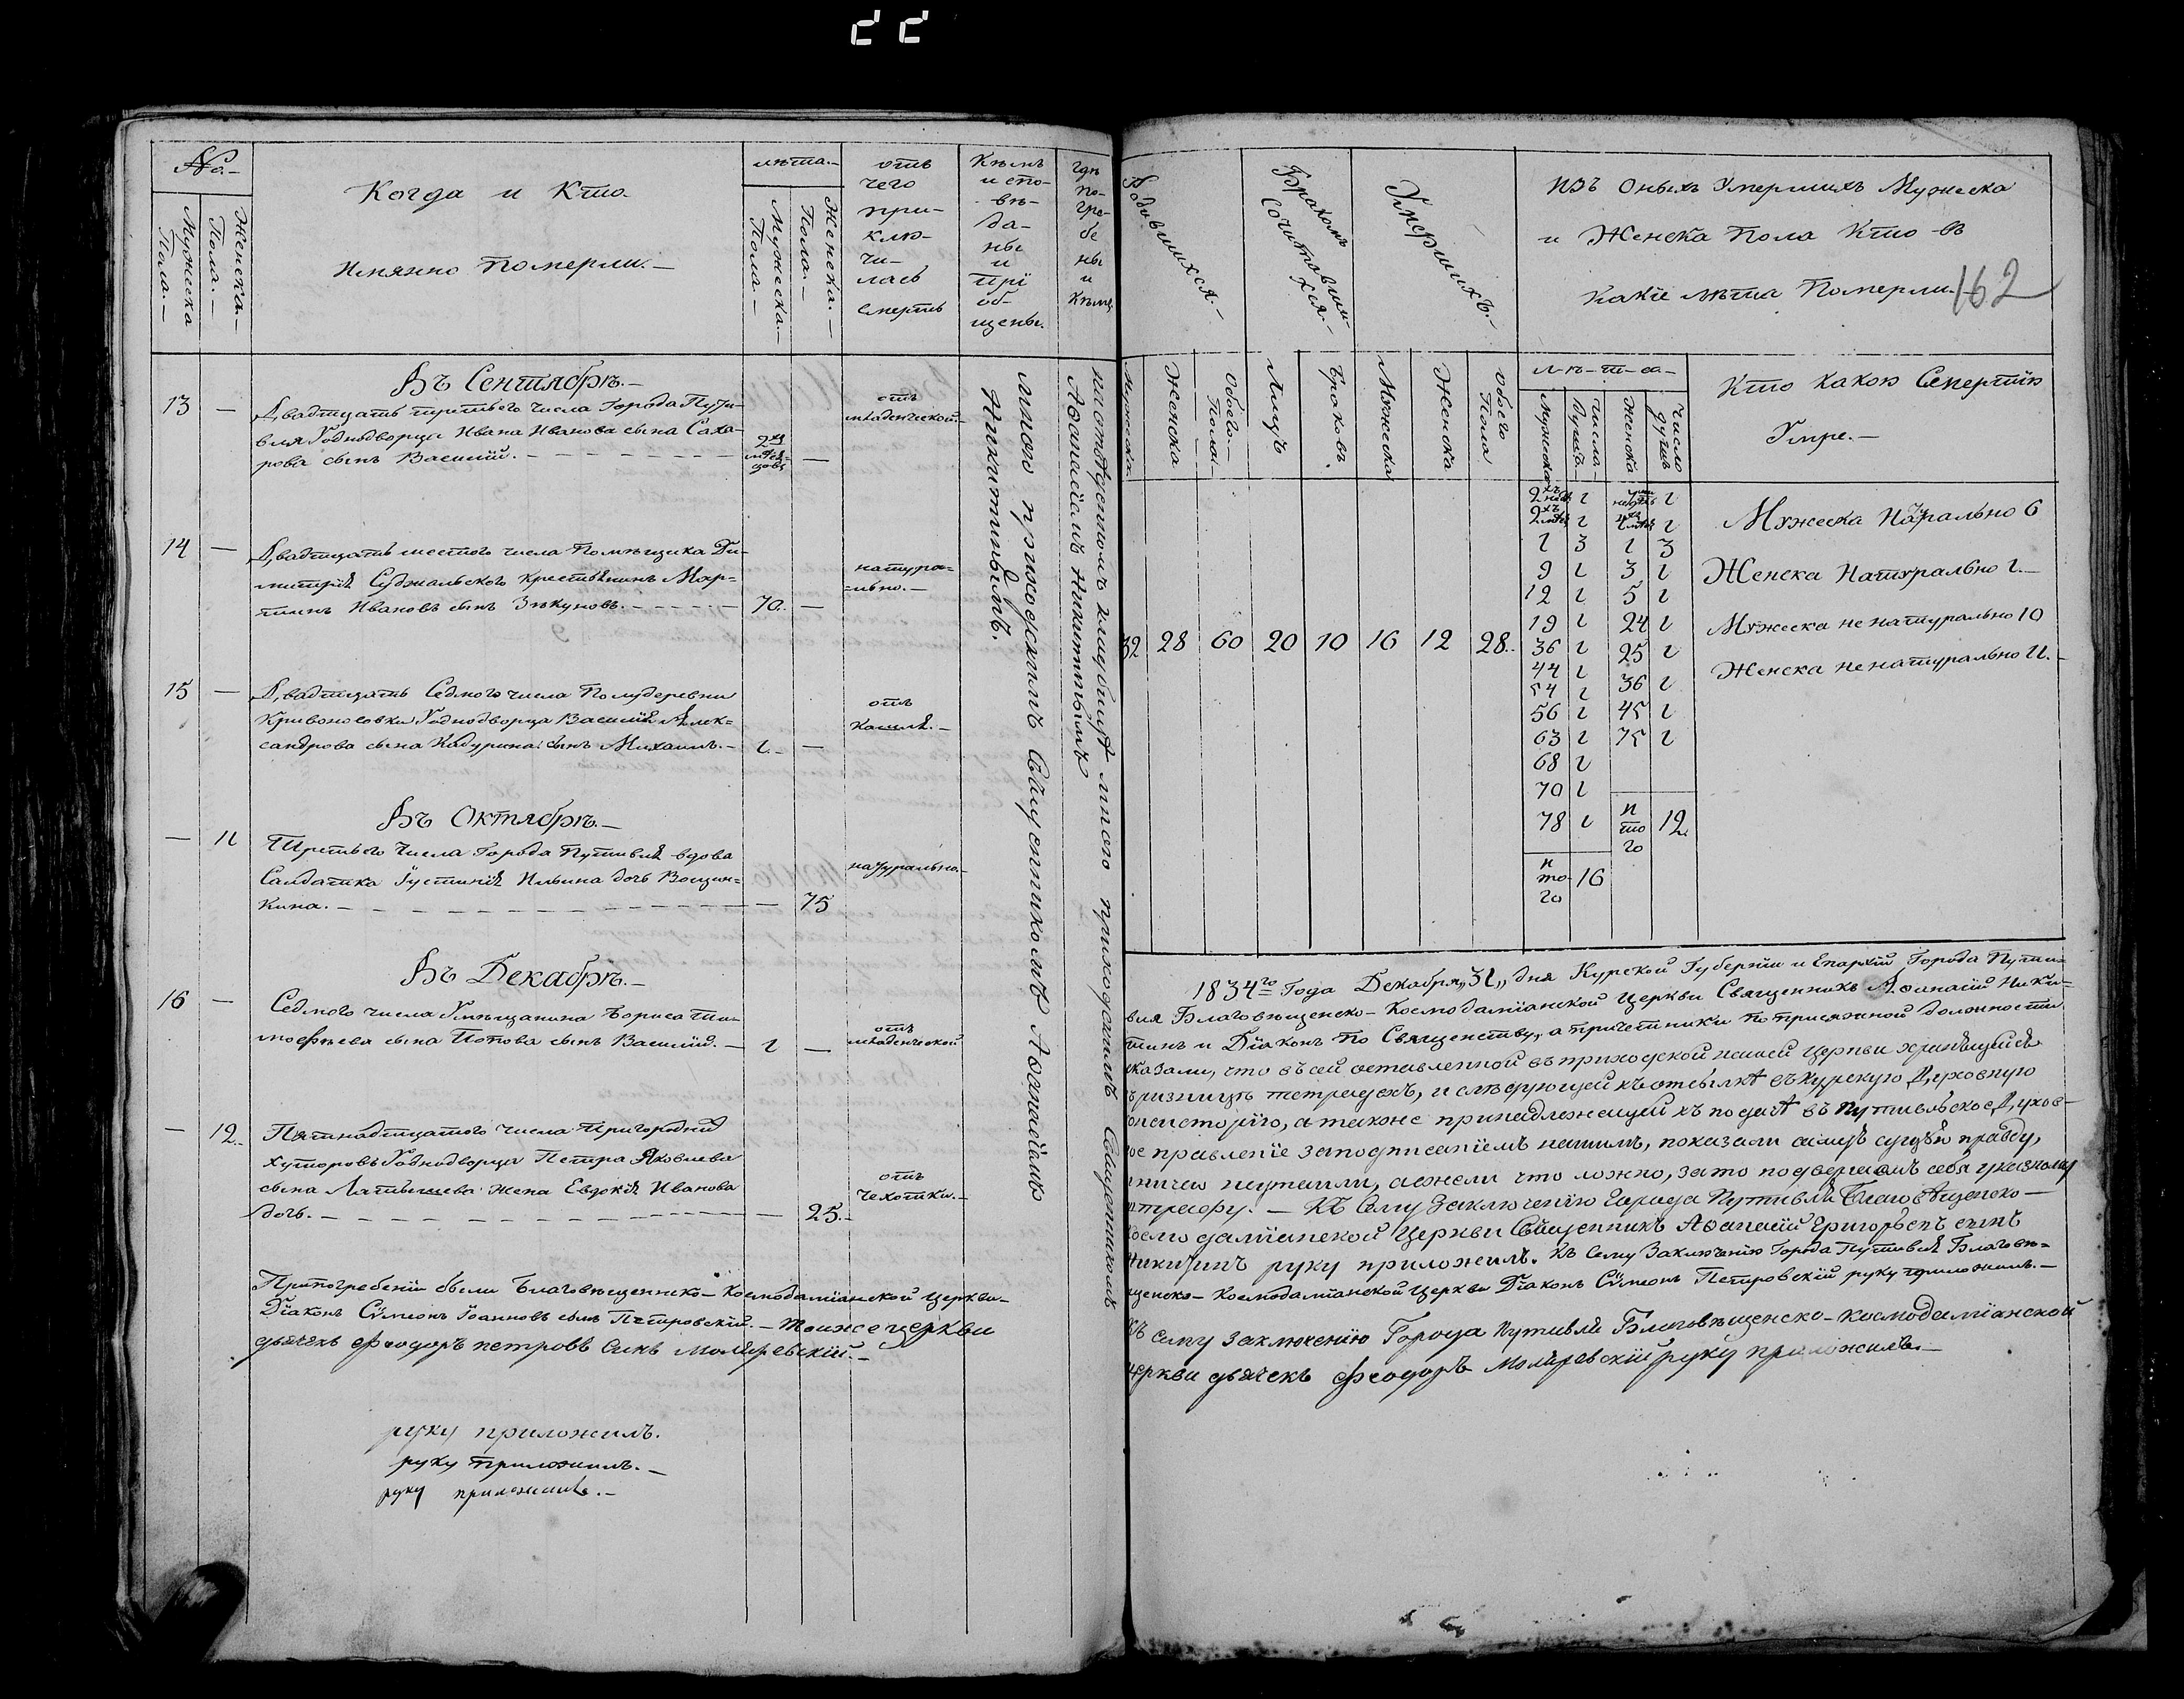 162
№.
Мужеска Пола.
Женска Пола.
Когда и Кто
Имянно померли.
лѣта.
Мужеска Пола.
Женска Пола.
отъ
чего
при-
клю-
чи-
лась
смерть
Кѣмъ
и спо-
вѣ-
да-
ны
и
прі
об-
щены.
гдѣ
по-
гре-
бе
ны
и
кѣмъ
Въ Сентябрѣ.
13 — Двадцать третьего числа Города Пути-
вля Однодворца Ивана Иванова сына Саха-
рова сынъ Василий. 2хъ мѣся-цовъ —
отъ
младенческой.
14 — Двадцать шестого числа Помѣщика Ди-
митрія Суджальского Крестьянинъ Мар-
тинъ Ивановъ сынъ Зѣкуновъ. 70. —
натура-
льно.
15 — Двадцать Седмого числа Полудеревни
Кривоносовки Однодворца Василія Алек-
сандрова сына Кабурина сынъ Михаилъ. 1. —
отъ
кашля.
Въ Октябрѣ.
— 11 Третьего Числа Города Путивля вдова
Салдатка Іустинія Ильина дочь Вощин-
кина. — 75
натурально.
Въ Декабрѣ.
16 — Седмого числа мѣщанина Бориса Ти-
мофѣева сына Попова сынъ Василий. 1 —
отъ
младенческой
— 12. Пятнадцатого числа Пригородних
хуторовъ Однодворца Петра Яковлева
сына Латышева жена Евдокія Иванова
дочь. — 25.
отъ
чехотки.
мною приходскимъ Священникомъ Аѳанасіемъ
Никитинымъ.
на отведенномъ кладбищѣ мною приходскимъ Священникомъ
Аѳанасіемъ Никитинымъ
При погребеніи были Благовѣщенско-Космодаміанской Церкви
Діаконъ Сѵмеонъ Іоанновъ сынъ Петровский. — тоиже церкви
дьячекъ Феодоръ петровъ сынъ
руку приложилъ.
руку приложилъ.
руку приложилъ.
Родившихся.
Бракомъ Сочитавши-хся.
Умершихъ.
изъ оныхъ Умершихъ Мужеска
и Женска Пола Кто въ
какіе лѣта Померли.
Мужеска
Женска
Обоего Пола
Лицъ
Браковъ
Мужеска
Женска
Обоего Пола
лѣ-т-са
Мужеска
Число душъ
Женска
Число душъ
Кто какою Смертию
Умре.
32 28 60 20 10 16 12 28.
2хъ нед. 1
2хъ мѣся. 1 1
1 3 1 3
9 1 3 1
12 1 5 1
19 1 24 1
36 1 25 1
44 1 36 1
54 1 45 1
56 1 75 1
63 1
68 1
70 1
78 1
и то го 12.
и то го 16
Мужеска Натурально 6
Женска Натурально 1.
Мужеска не натурально 10
Женска не натурально 11.
1834го Года Декабря „31„ дня Курской Губерніи и Епархіи Города Пути-
вля Благовѣщенско-Космодаміанской Церкви Священникъ Аѳанасій Ники-
тинъ и Діаконъ по Священству, а причетники по присяжной должности
показали, что въ сей оставленной въ приходской нашей церкви хранящейся
въ ризницѣ тетрадехъ, и слѣдующей къ отсылкѣ въ Курскую Духовную
Консисторію, а также принадлежащей къ подачѣ въ Путивльское Духов-
ное правленіе за подписаніемъ нашимъ, показали самую сущую правду,
и ничего не утаили, а ежели что ложно, за то подвергаемъ себя указному
штрафу. — Къ Сему Заключенію Города Путивля Благовѣщенско-
Космодаміанской Церкви Священникъ Аѳанасій Григорьевъ сынъ
Никитинъ руку приложилъ. Къ Сему Заключенію Города Путивля Благовѣ-
щенско-Космодаміанской Церкви Діаконъ Сѵмеонъ Петровскій руку приложилъ.
Къ сему заключенію Города Путивля Благовѣщенско-космодаміанской
церкви дьячекъ Феодоръ руку приложилъ.